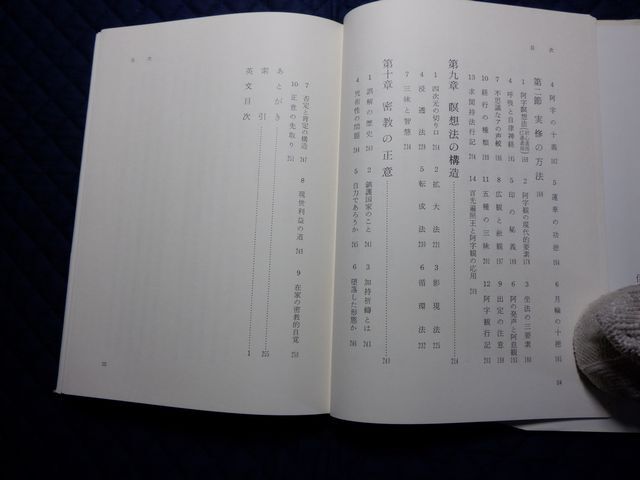 目次
4 阿字の十義 162
5 蓮華の功徳 164
6 月輪の十徳 165
第二節 実修の方法 168
1 阿字瞑想法 168
2 阿字観の現代的要素 178
3 坐法の三要素 180
4 呼吸と自律神経 185
5 印の秘義 188
6 阿の発声と阿息観
7 不思議なアの声紋
8 広観と斂観 197
9 出定の注意
10 経行の種類
11 五種の三昧
12 阿字観行記
13 求聞持法行記
14 言先遍照王と阿字観の応用
第九章 瞑想法の構造 214
1 四次元の切り口 214
2 拡大法 220
3 影現法 225
4 浸透法 229
5 転成法 230
6 循環法 232
7 三昧と智慧 234
第十章 密教の正意 240
1 誤解の歴史 240
2 鎮護国家のこと 241
3 加持祈祷とは 243
4 死術性の問題 244
5 自力であろうか 245
6 堕落した形態か 246
34
目次
7 否定と肯定の構造 247
8 現世利益の道 249
9 在家の密教的自覚 250
10 正意の先取り 251
あとがき
索引 255
英文目次 1
35